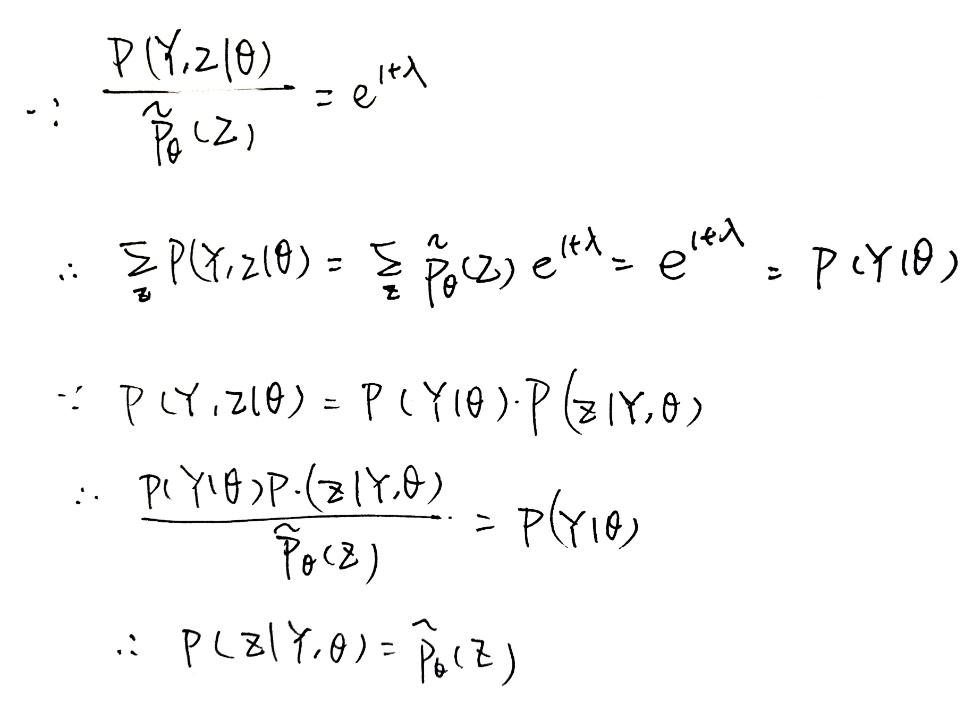 ∵ P(Y,Z|θ) / P̃_θ(Z) = e^{1+λ}
∴ Σ_z P(Y,Z|θ) = Σ_z P̃_θ(Z) e^{1+λ} = e^{1+λ} = P(Y|θ)
∵ P(Y,Z|θ) = P(Y|θ)·P(Z|Y,θ)
∴ P(Y|θ)P·(Z|Y,θ) / P̃_θ(Z) = P(Y|θ)
∴ P(Z|Y,θ) = P̃_θ(Z)